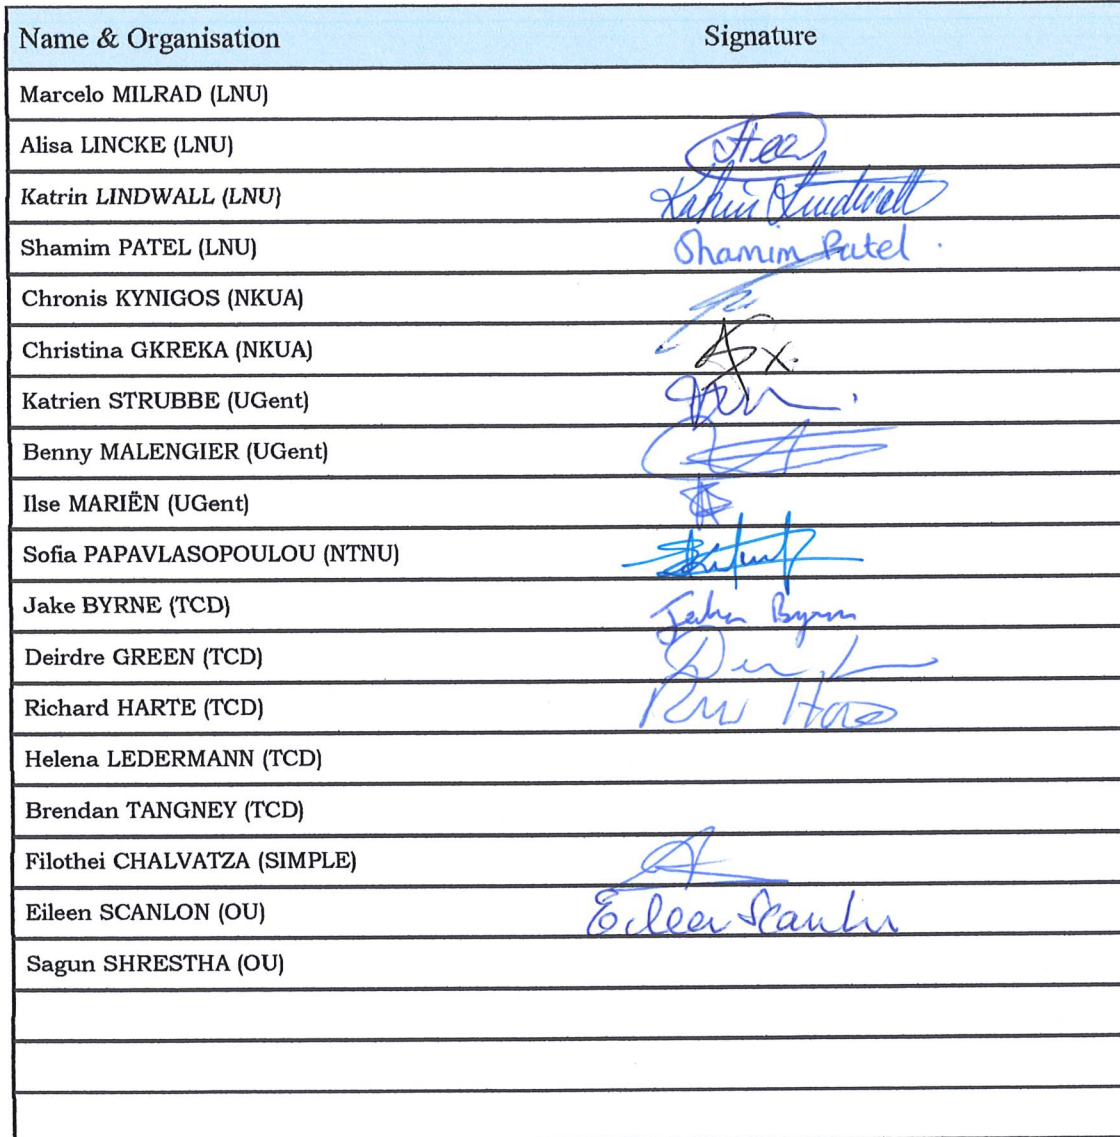 Name & Organisation Signature
Marcelo MILRAD (LNU)
Alisa LINCKE (LNU)
Katrin LINDWALL (LNU) Katrin Lindwall
Shamim PATEL (LNU) Shamim Patel .
Chronis KYNIGOS (NKUA)
Christina GKREKA (NKUA)
Katrien STRUBBE (UGent)
Benny MALENGIER (UGent)
Ilse MARIËN (UGent)
Sofia PAPAVLASOPOULOU (NTNU)
Jake BYRNE (TCD) Byrne
Deirdre GREEN (TCD)
Richard HARTE (TCD)
Helena LEDERMANN (TCD)
Brendan TANGNEY (TCD)
Filothei CHALVATZA (SIMPLE)
Eileen SCANLON (OU) Eileen Scanlon
Sagun SHRESTHA (OU)